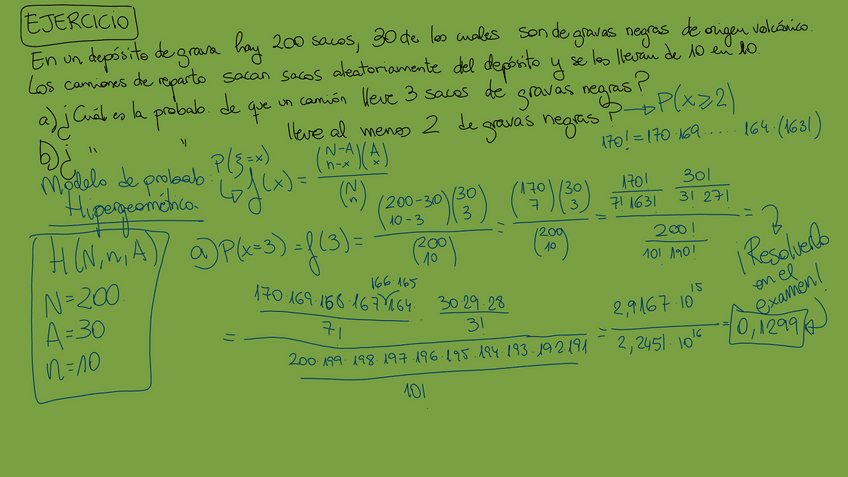 EJERCICIO
En un depósito de grava hay 200 sacos, 30 de los cuales son de gravas negras de origen volcánico.
Los camiones de reparto sacan sacos aleatoriamente del depósito y se los llevan de 10 en 10.
a) ¿Cuál es la probab. de que un camión lleve 3 sacos de gravas negras?
b) ¿ " " lleve al menos 2 de gravas negras? → P(x≥2)
170! = 170·169· ..... 164·(163!)
Modelo de probab.
Hipergeométrica.
P(ξ=x)
↳ f(x) = \frac{\binom{N-A}{n-x}\binom{A}{x}}{\binom{N}{n}}
H(N,n,A)
N=200
A=30
n=10
a) P(x=3) = f(3) = \frac{\binom{200-30}{10-3}\binom{30}{3}}{\binom{200}{10}} = \frac{\binom{170}{7}\binom{30}{3}}{\binom{200}{10}} = \frac{\frac{170!}{7! 163!} \frac{30!}{3! 27!}}{\frac{200!}{10! 190!}} =
¡Resolverlo
en el
examen!
= \frac{\frac{170·169·168·167·166·165·164}{7!} · \frac{30·29·28}{3!}}{\frac{200·199·198·197·196·195·194·193·192·191}{10!}} = \frac{2,9167·10^{15}}{2,2451·10^{16}} = 0,1299